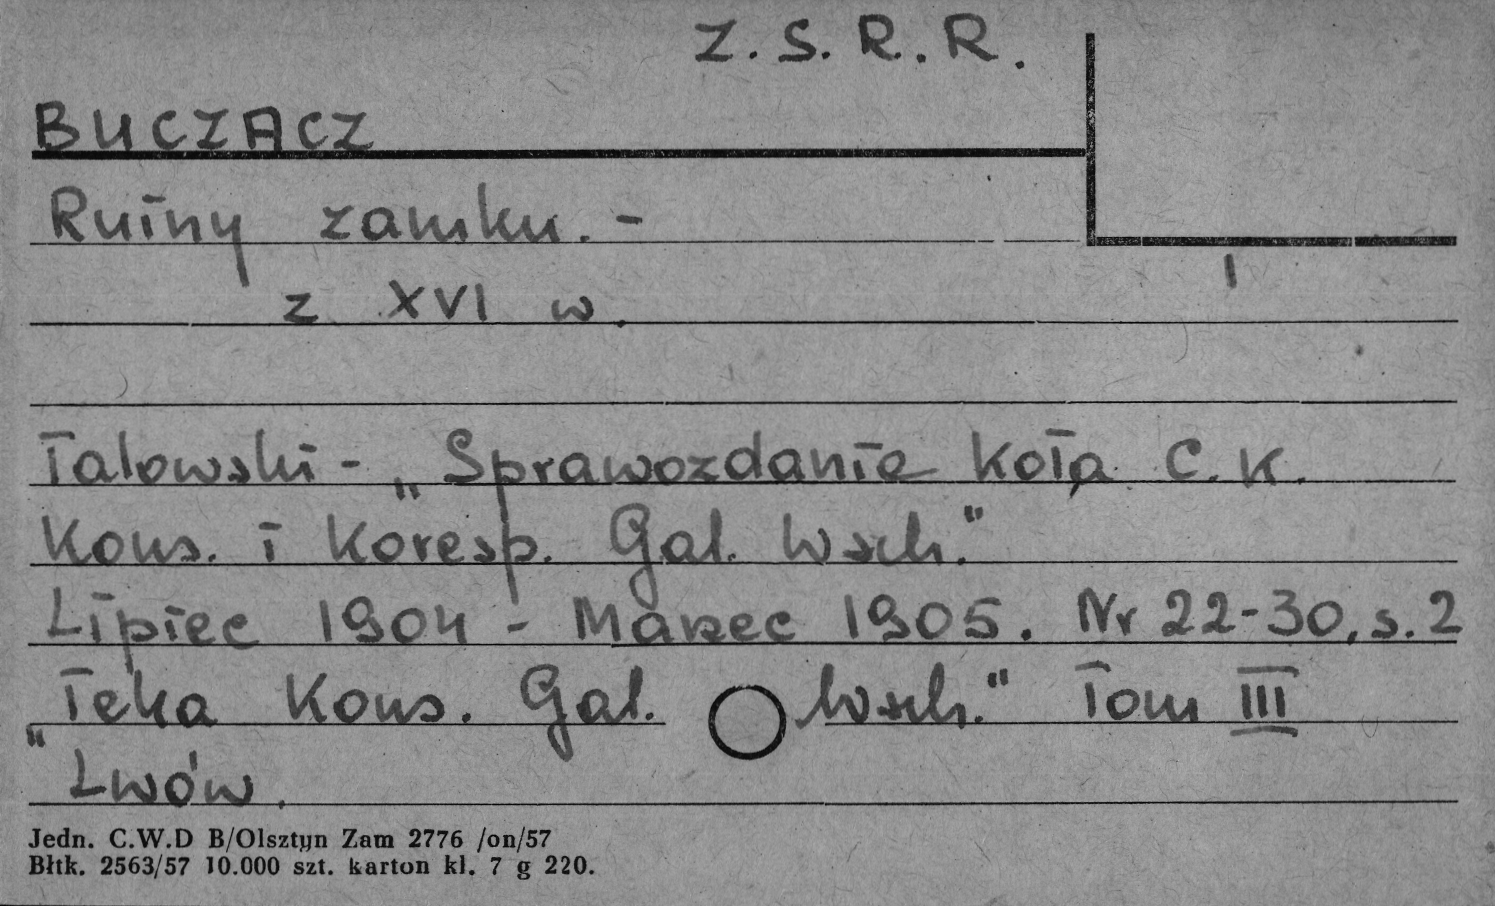 Z.S.R.R.
BUCZACZ
Ruiny zamku.-
z XVI w.
Talowski - „Sprawozdanie Koła C.K.
Kons. i Koresp. Gal. Wsch."
Lipiec 1904 - Marzec 1905. Nr 22-30, s. 2
„Teka Kons. Gal. Wsch." Tom III
Lwów.
Jedn. C.W.D B/Olsztyn Zam 2776 /on/57
Błtk. 2563/57 10.000 szt. karton kl. 7 g 220.